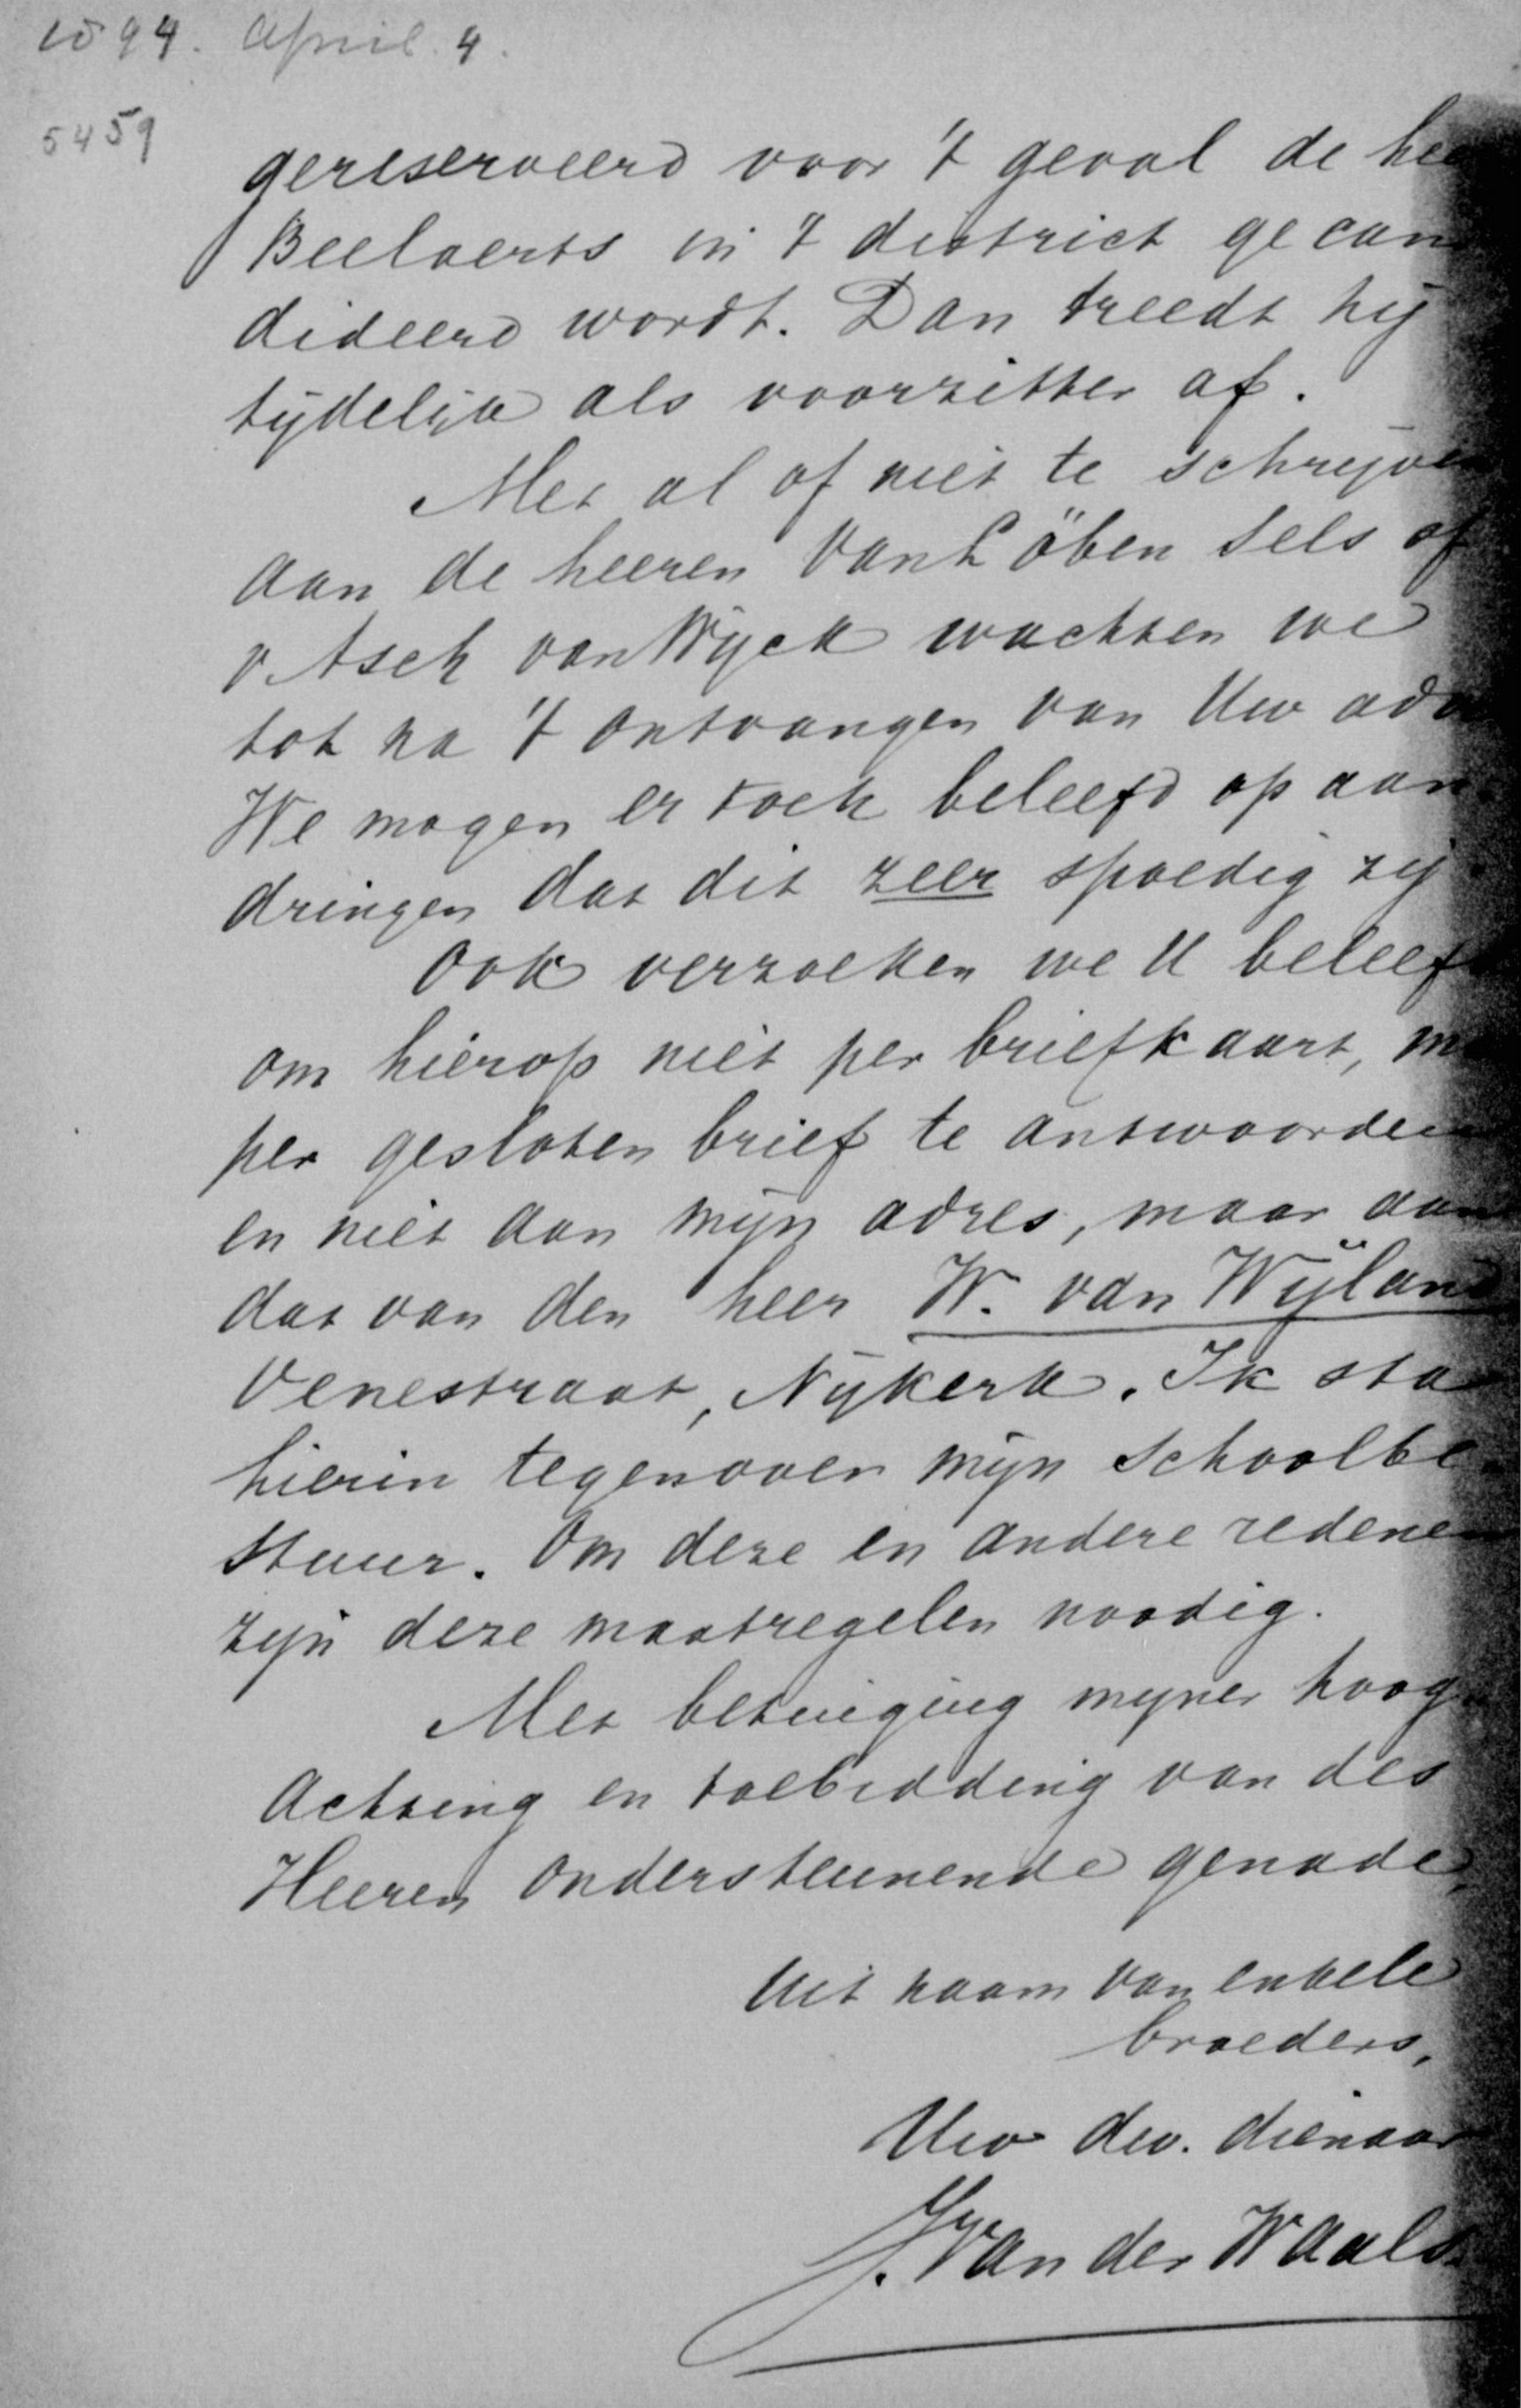 1894. April. 4.
5459
gereserveerd voor 't geval de hee
Beelaerts in 't district gecan
dideerd wordt. Dan treedt hij
tijdelijk als voorzitter af.
Met al of niet te schrijven
aan de heeren van Löben Sels of
v Asch van Wijck wachten we
tot na 't ontvangen van Uw adv
We mogen er toch beleefd op aan
dringen dat dit zeer spoedig zij.
Ook verzoeken we U beleef
om hierop niet per briefkaart, ma
per gesloten brief te antwoorden
en niet aan mijn adres, maar aan
dat van den heer W. van Wijland
Venestraat, Nijkerk. Ik sta
hierin tegenover mijn schoolbe
stuur. Om deze en andere redenen
zijn deze maatregelen noodig.
Met betuiging mijner hoog
achting en toebidding van des
Heeren ondersteunende genade,
Uit naam van enkele
broeders,
Uw dw. dienaar
J. van der Waals.